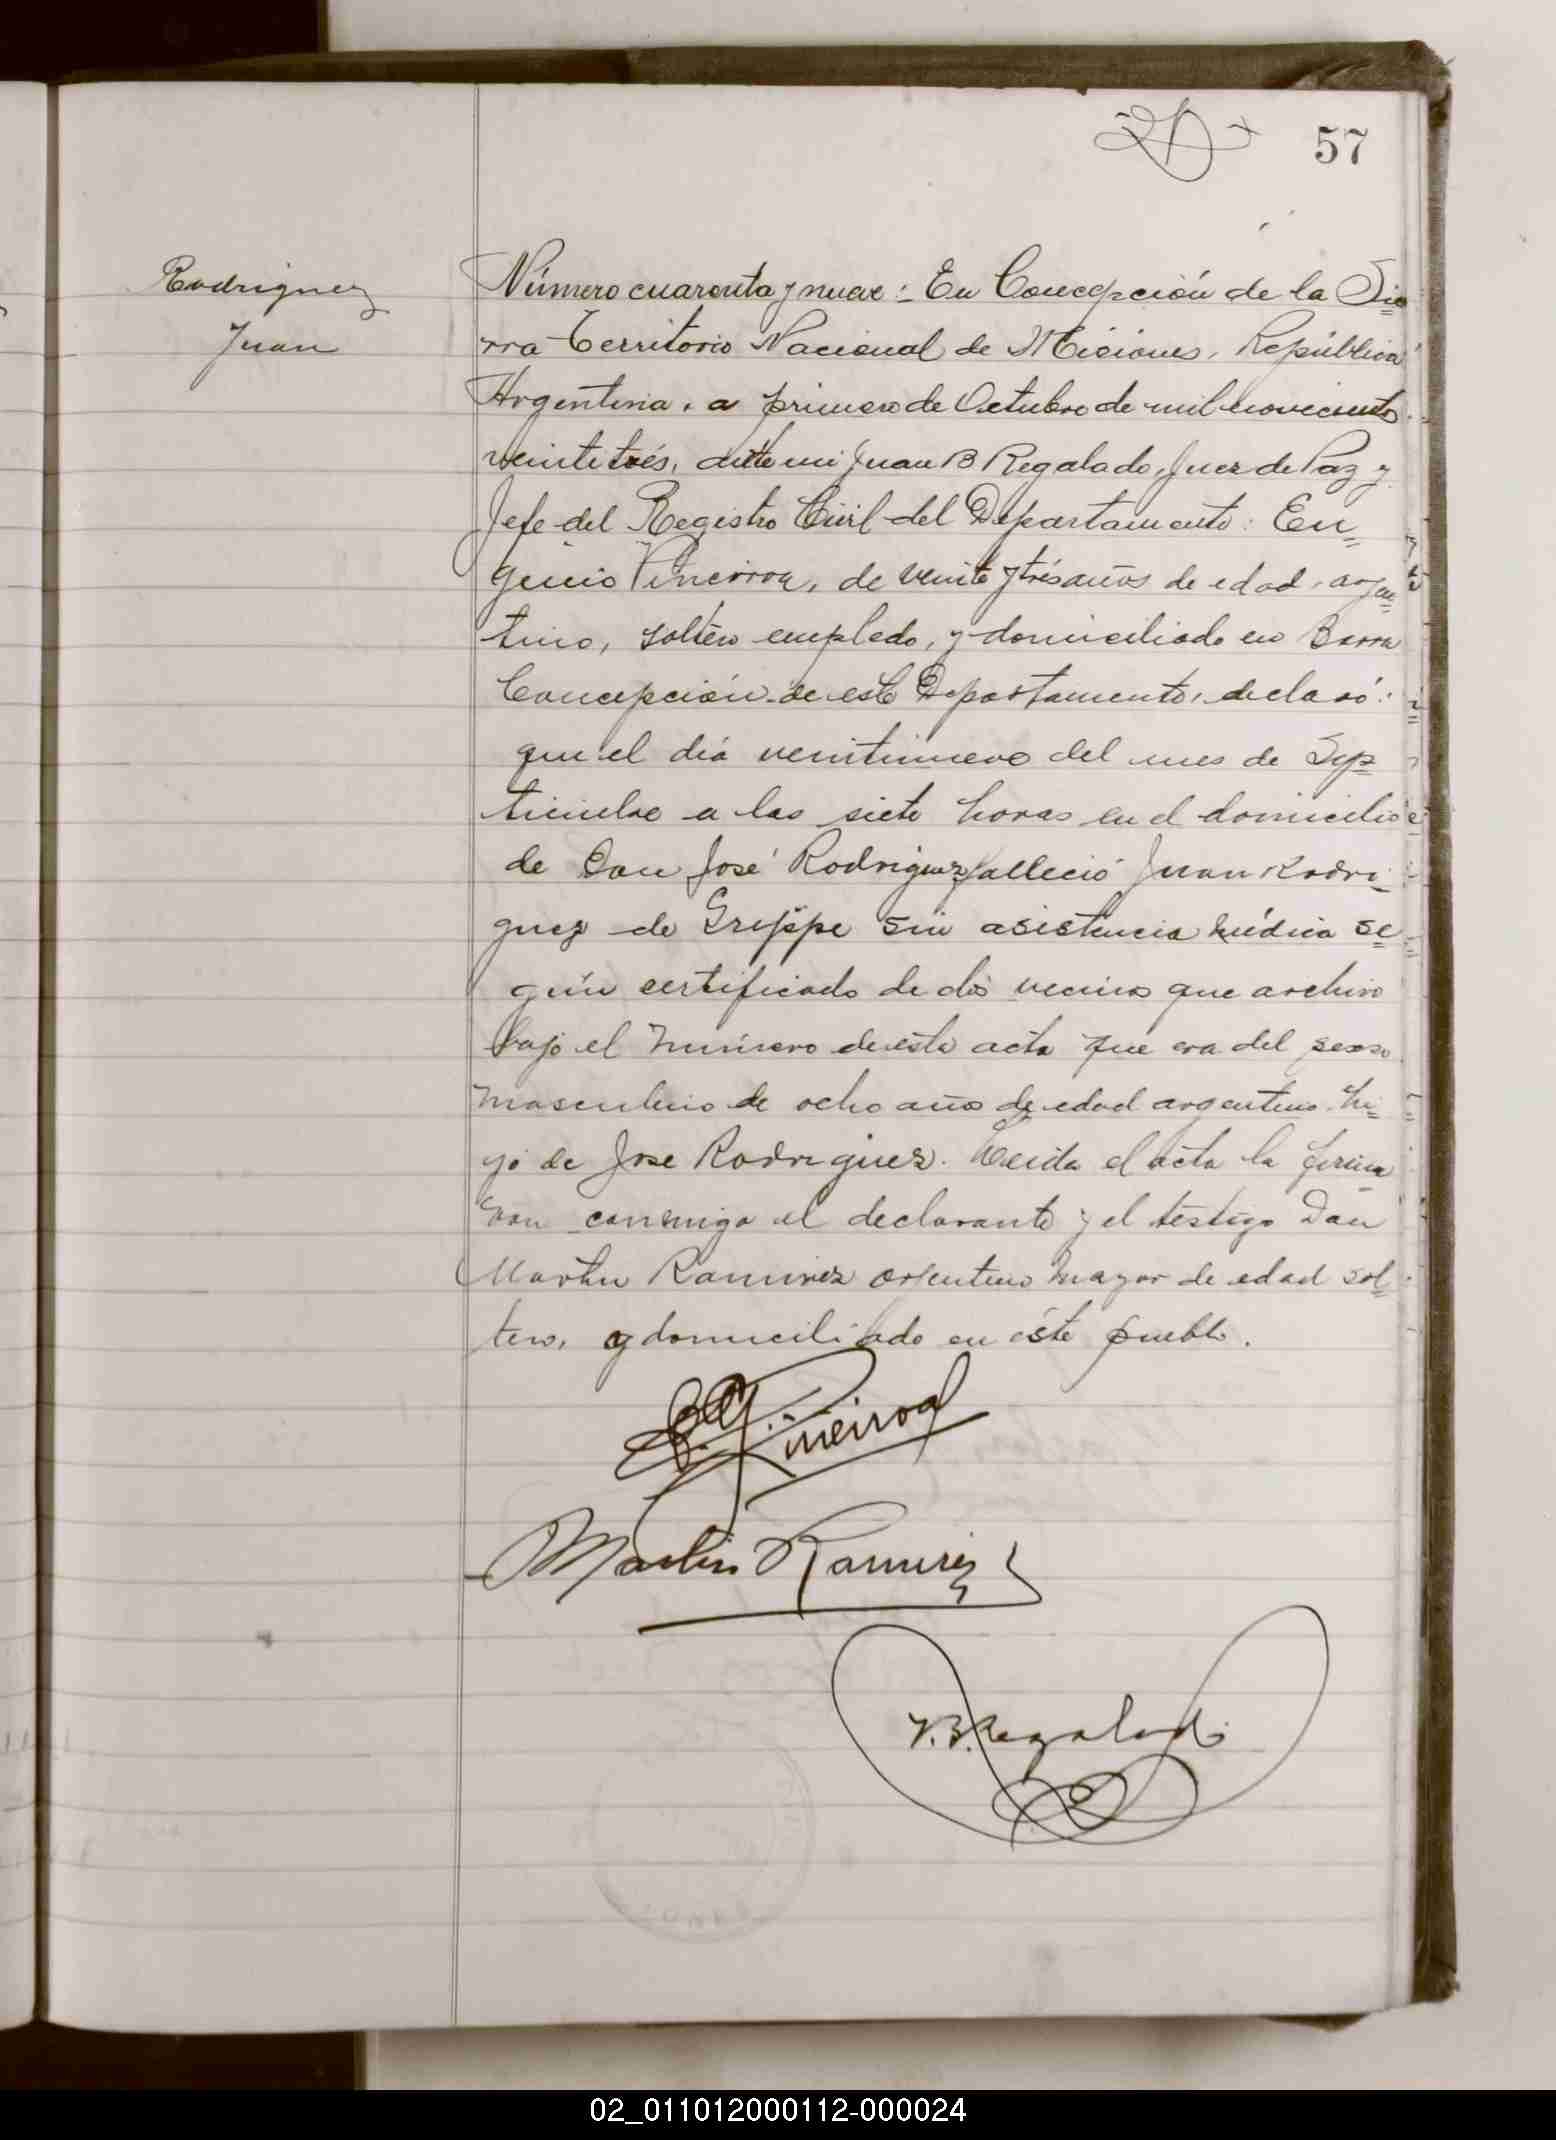 57
Rodriguez
Juan
Número cuarenta y nueve: En Concepción de la Sie
rra Territorio Nacional de Misiones, República
Argentina, a primero de Octubre de mil novecientos
veintitrés, ante mi Juan B Regalado, Juez de Paz y
Jefe del Registro Civil del Departamento: Eu=
genio Pineiroa, de veinte y trés años de edad, argen=
tino, soltero empledo, y domiciliado en Barra
Concepción de este Departamento, declaró:
que el día veintinueve del mes de Sep=
tiembre a las siete horas en el domicilio
de Don José Rodriguez falleció Juan Rodri=
guez de Grippe sin asistencia médica se=
gún certificado de dos vecinos que archivo
bajo el número de esta acta que era del sexo
masculino de ocho años de edad argentino hi=
jo de Jose Rodriguez. Leida el acta la firma
ron conmigo el declarante y el testigo Don
Martin Ramirez argentino mayor de edad sol=
tero, y domiciliado en éste pueblo.
E. G. Pineiroa
Martin Ramirez
J. B. Regalado
02_011012000112-000024